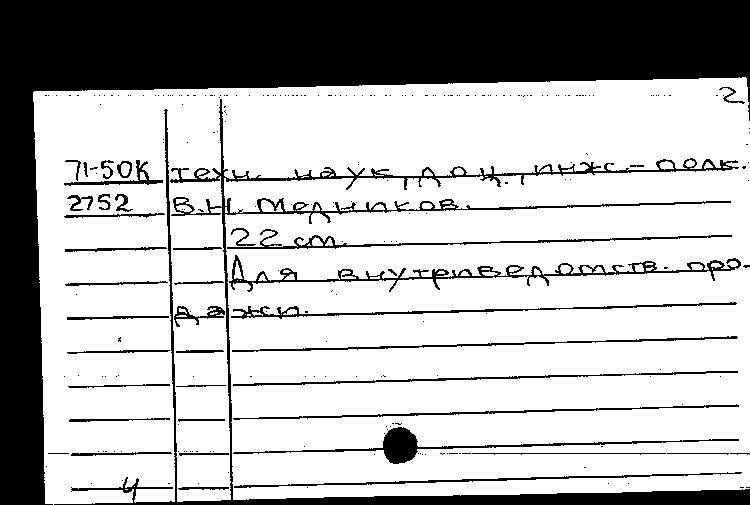 2
71-50К техн. наук, доц., инж.-полк.
2752 В.Н. Медников.
22 см.
Для внутриведомств. про-
дажи.
4